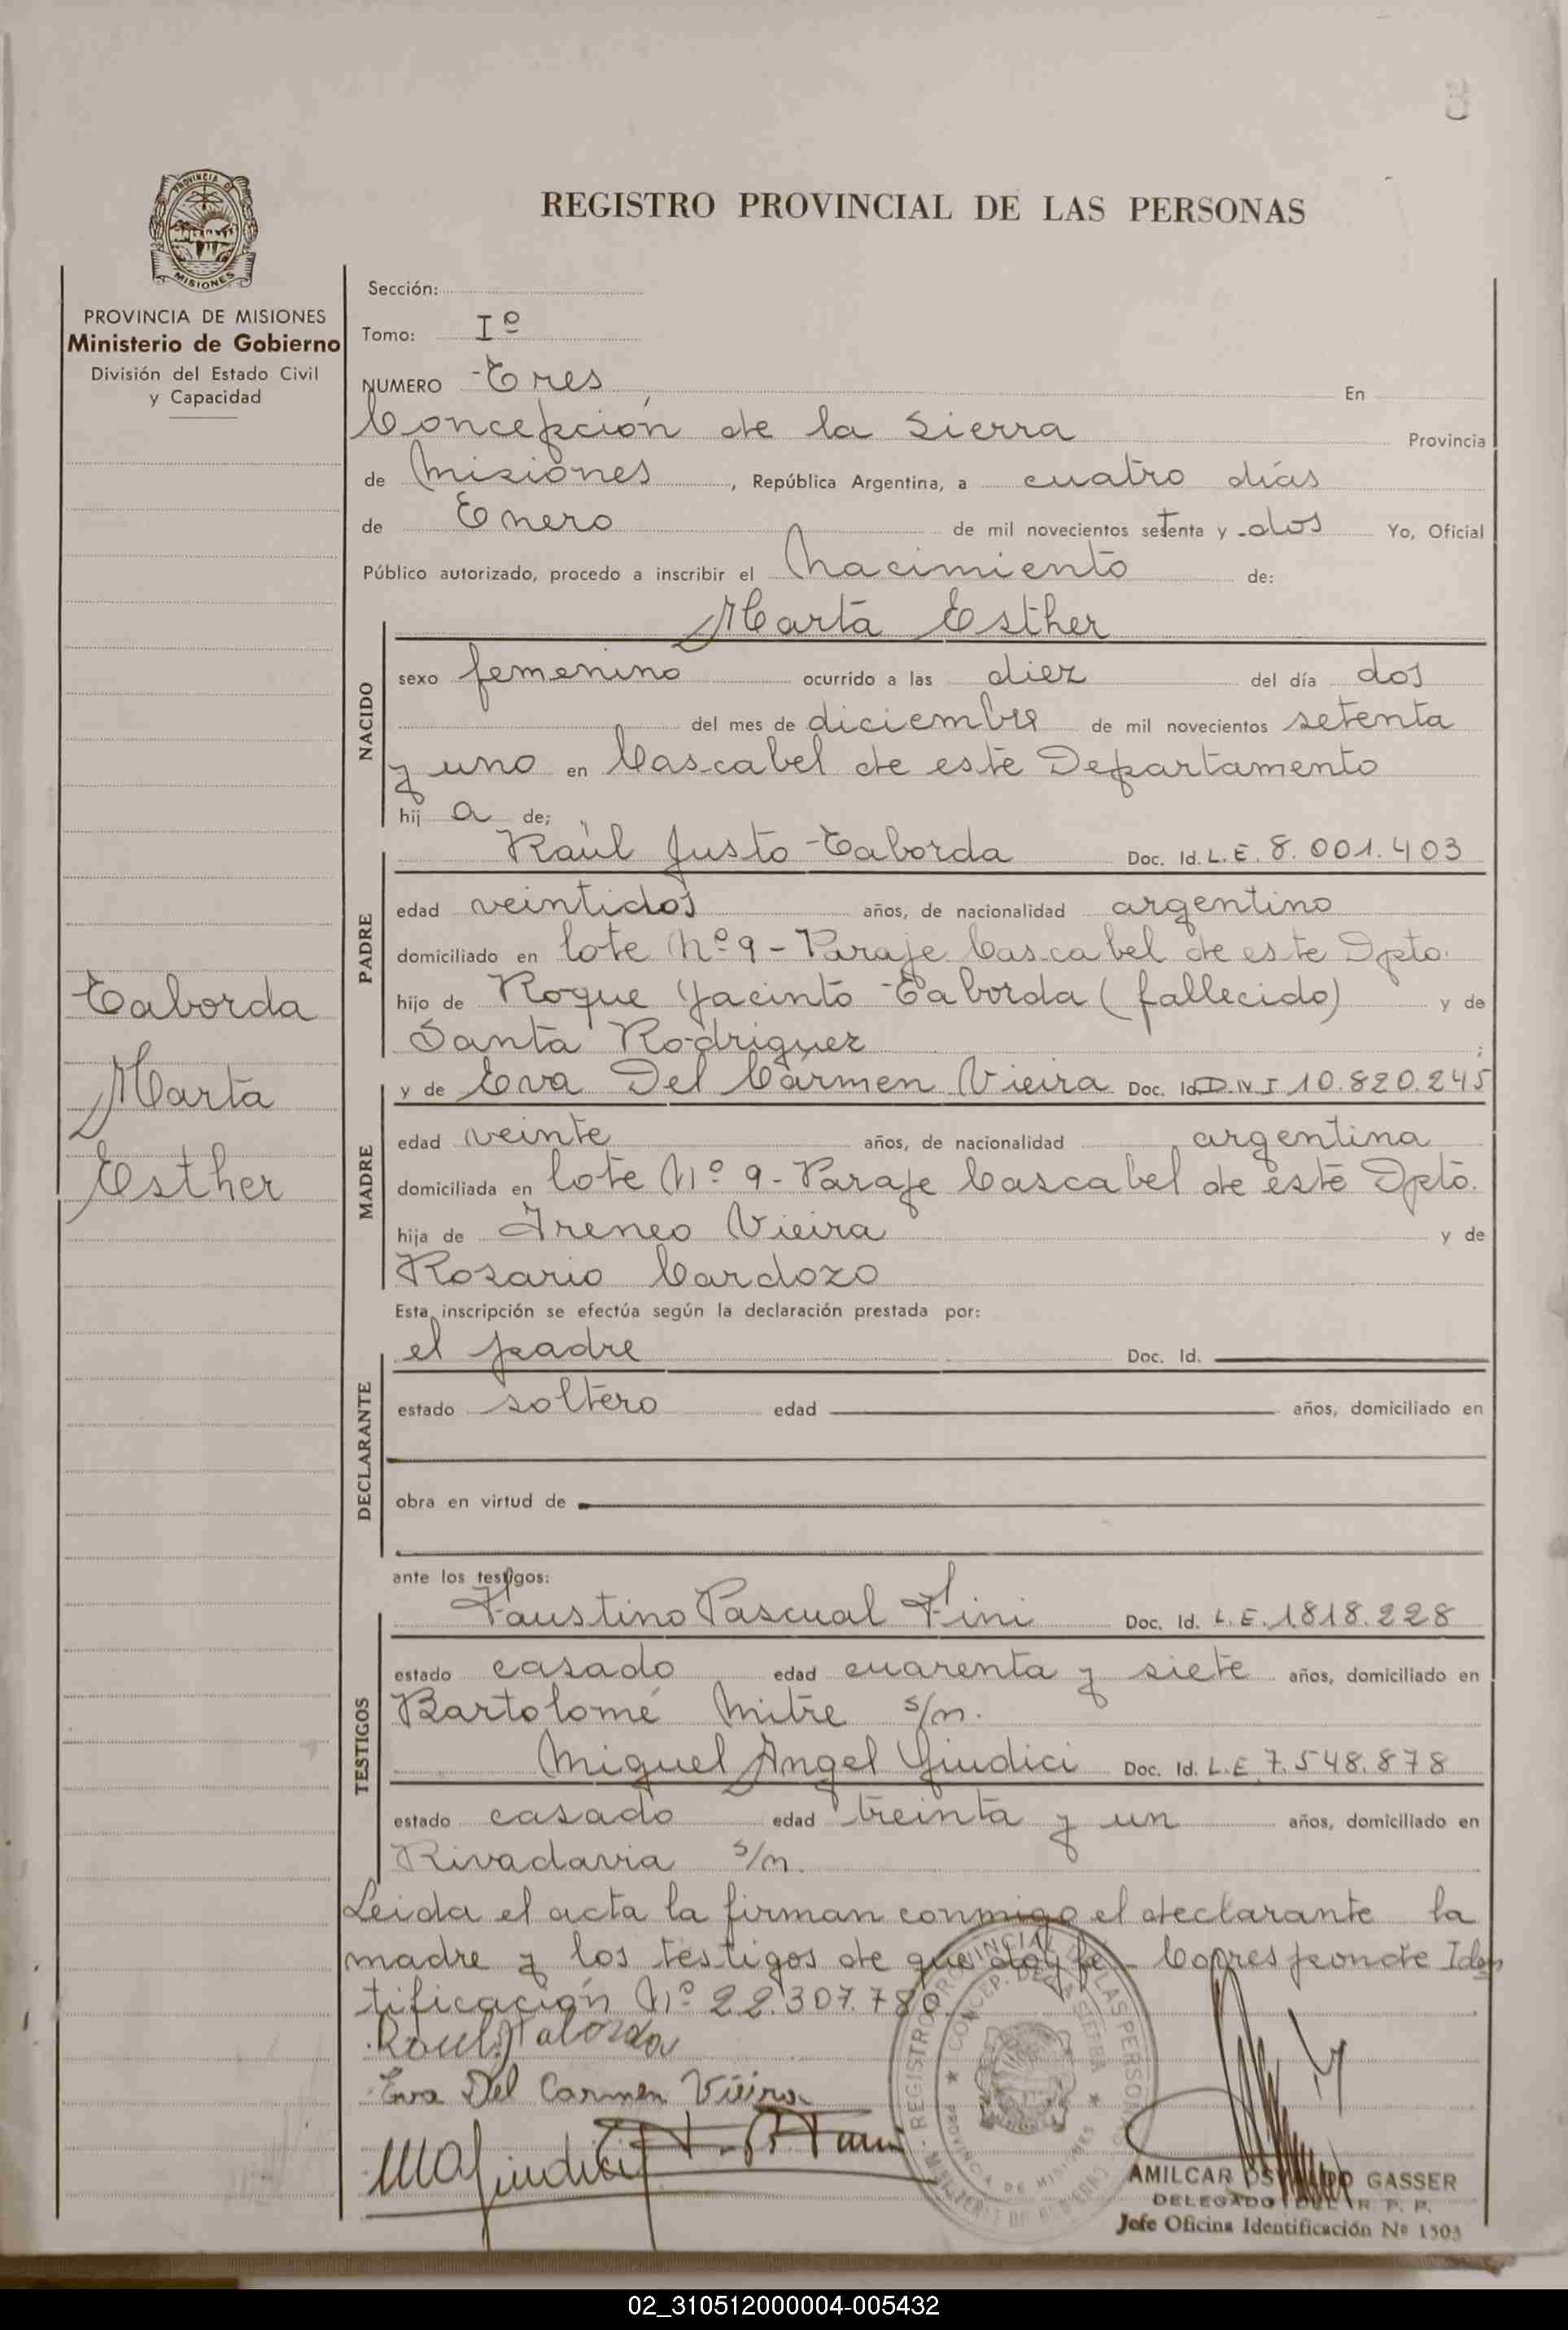 3
REGISTRO PROVINCIAL DE LAS PERSONAS
PROVINCIA DE
MISIONES
PROVINCIA DE MISIONES
Ministerio de Gobierno
División del Estado Civil
y Capacidad
Taborda
Marta
Esther
Sección:
Tomo: Iº
NUMERO Tres En
Concepción de la Sierra Provincia
de Misiones, República Argentina, a cuatro días
de Enero de mil novecientos setenta y dos Yo, Oficial
Público autorizado, procedo a inscribir el Nacimiento de:
Marta Esther
NACIDO
sexo femenino ocurrido a las diez del día dos
del mes de diciembre de mil novecientos setenta
y uno en Cascabel de este Departamento
hij a de;
PADRE
Raúl Justo Taborda Doc. Id. L.E. 8.001.403
edad veintidos años, de nacionalidad argentino
domiciliado en lote Nº 9 - Paraje Cascabel de este Dpto.
hijo de Roque Jacinto Taborda (fallecido) y de
Santa Rodriguez ;
MADRE
y de Eva Del Cármen Vieira Doc. Id. D.N.I 10.820.245
edad veinte años, de nacionalidad argentina
domiciliada en lote Nº 9 - Paraje Cascabel de este Dpto.
hija de Ireneo Vieira y de
Rosario Cardozo
Esta inscripción se efectúa según la declaración prestada por:
DECLARANTE
el padre Doc. Id.
estado soltero edad años, domiciliado en
obra en virtud de
ante los testigos:
TESTIGOS
Faustino Pascual Fini Doc. Id. L.E. 1.818.228
estado casado edad cuarenta y siete años, domiciliado en
Bartolomé Mitre s/n.
Miguel Ángel Giudici Doc. Id. L.E. 7.548.878
estado casado edad treinta y un años, domiciliado en
Rivadavia s/n.
Leida el acta la firman conmigo el declarante la
madre y los testigos de que doy fe - Corresponde Iden
tificación Nº 22.307.780.
Raul J Taborda
Eva Del Carmen Vieira
MAGiudici
REGISTRO PROVINCIAL DE LAS PERSONAS
CONCEP. DE LA SIERRA
PROVINCIA DE MISIONES
MINISTERIO DE GOBIERNO
AMILCAR OSVALDO GASSER
DELEGADO DEL R. P. P.
Jefe Oficina Identificación Nº 1503
02_310512000004-005432